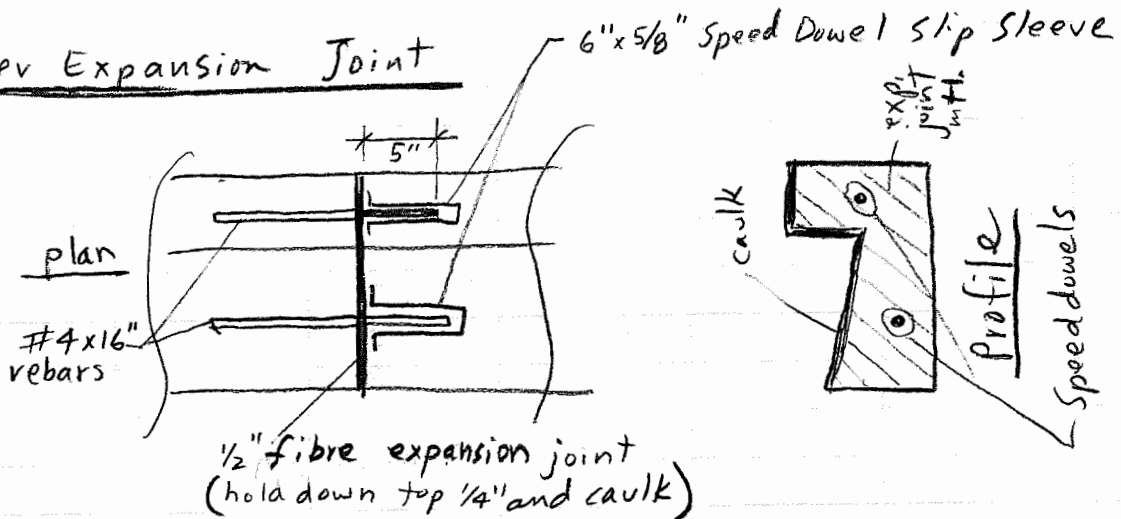 Expansion Joint
6"x5/8" Speed Dowel Slip Sleeve
5"
plan
#4x16"
rebars
1/2" fibre expansion joint
(hold down top 1/4" and caulk)
caulk
exp.
joint
mtl.
Profile
Speed dowels